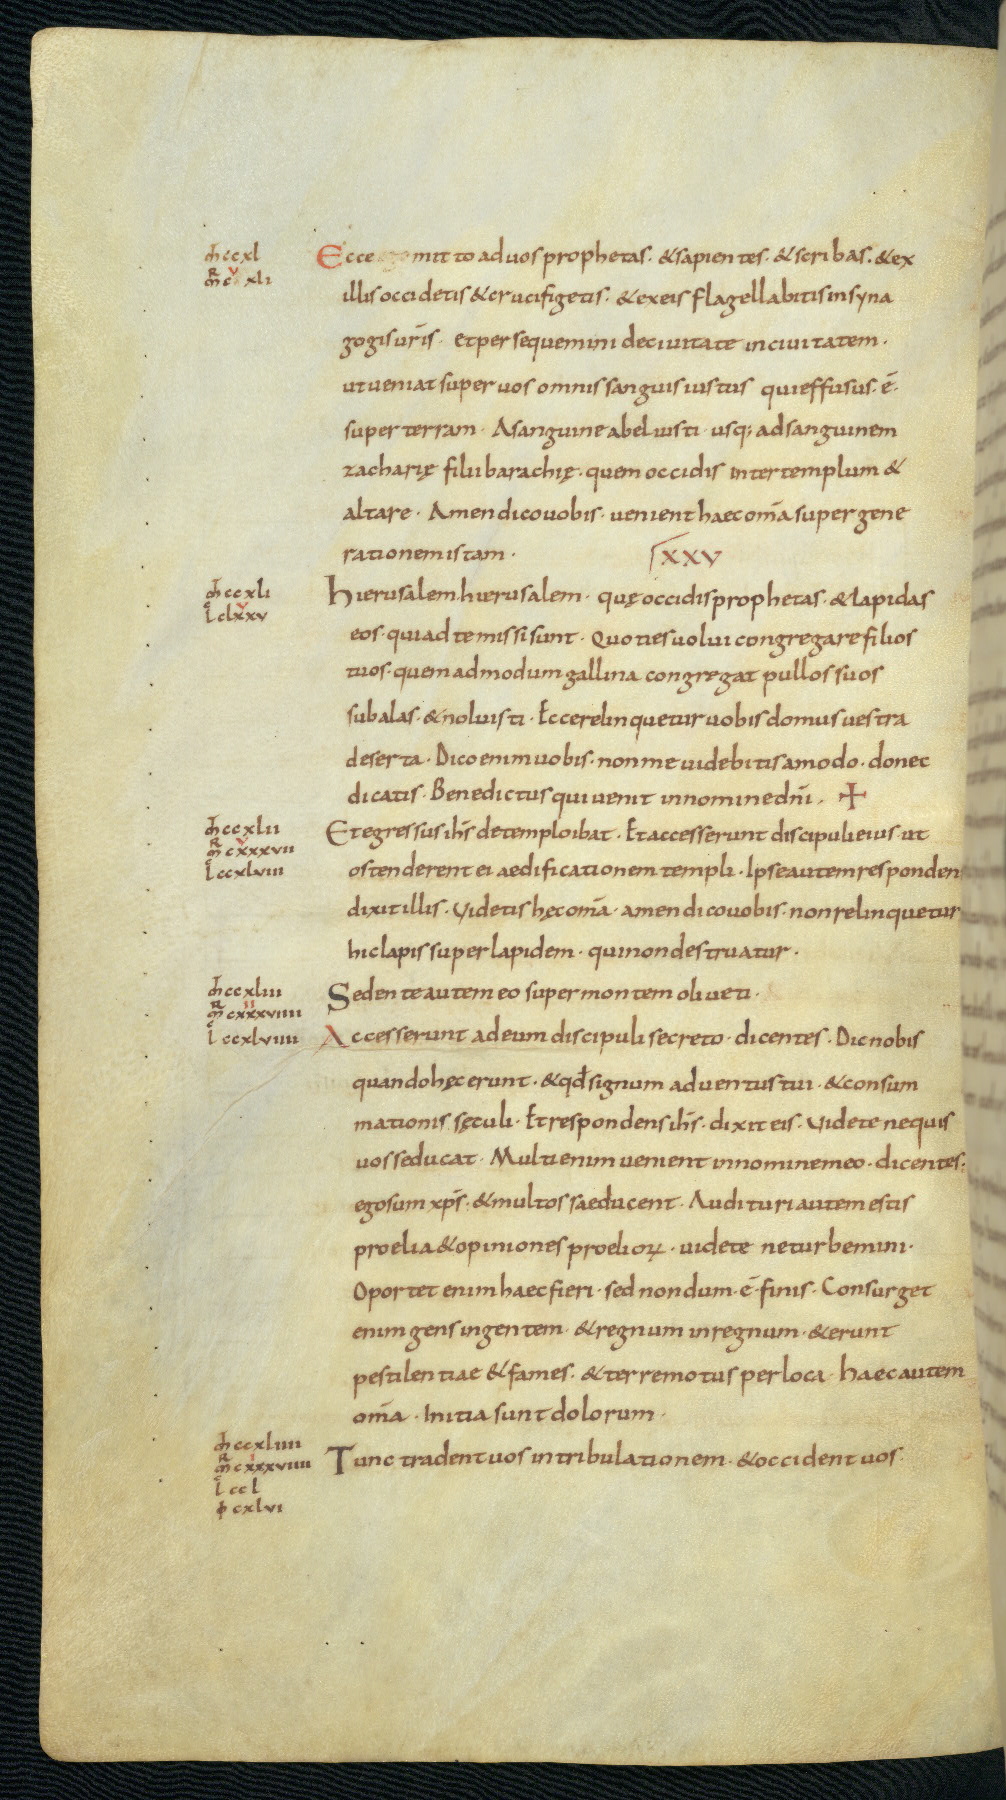 mt ccxl Ecce ego mitto ad uos prophetas. & sapientes. & scribas. & ex
mR c xli illis occidetis & crucifigetis. & ex eis flagellabitis in syna
gogis uris. et persequemini de ciuitate in ciuitatem.
ut ueniat super uos omnis sanguis iustus qui effusus. ē.
super terram. A sanguine abel iusti. usq; ad sanguinem
zacharię filii barachię. quem occidis inter templum &
altare. Amen dico uobis. uenient haec om̄a super gene
rationem istam. XXV
mt ccxli Hierusalem hierusalem. quę occidis prophetas. & lapidas
lc clxxv eos. qui ad te missi sunt. Quoties uolui congregare filios
tuos. quemadmodum gallina congregat pullos suos
sub alas. & noluisti. Ecce relinquetur uobis domus uestra
deserta. Dico enim uobis. non me uidebitis amodo. donec
dicatis. Benedictus qui uenit in nomine dn̄i. +
mt ccxlii Et egressus ih̄s de templo ibat. Et accesserunt discipuli eius. ut
mR cxxxvii ostenderent ei aedificationem templi. Ipse autem responden
lc ccxlviii dixit illis. Videtis hęc om̄a. amen dico uobis. non relinquetur
hic lapis super lapidem. qui non destruatur.
mt ccxliii Sedente autem eo super montem oliueti.
mR cxxxviiii
lc ccxlviiii Accesserunt ad eum discipuli secreto. dicentes. Dic nobis
quando hęc erunt. & qđ signum aduentus tui. & consum
mationis sęculi. Et respondens ih̄s. dixit eis. Videte ne quis
uos seducat. Multi enim uenient in nomine meo. dicentes.
ego sum xp̄s. & multos saeducent. Audituri autem estis
proelia & opiniones proelioꝝ. uidete ne turbemini.
Oportet enim haec fieri. sed nondum. ē. finis. Consurget
enim gens in gentem. & regnum in regnum. & erunt
pestilentiae & fames. & terremotus per loca. haec autem
om̄a. Initia sunt dolorum.
mt ccxliiii
mR cxxxviiii Tunc tradent uos in tribulationem. & occident uos.
lc ccl
φ cxlvi